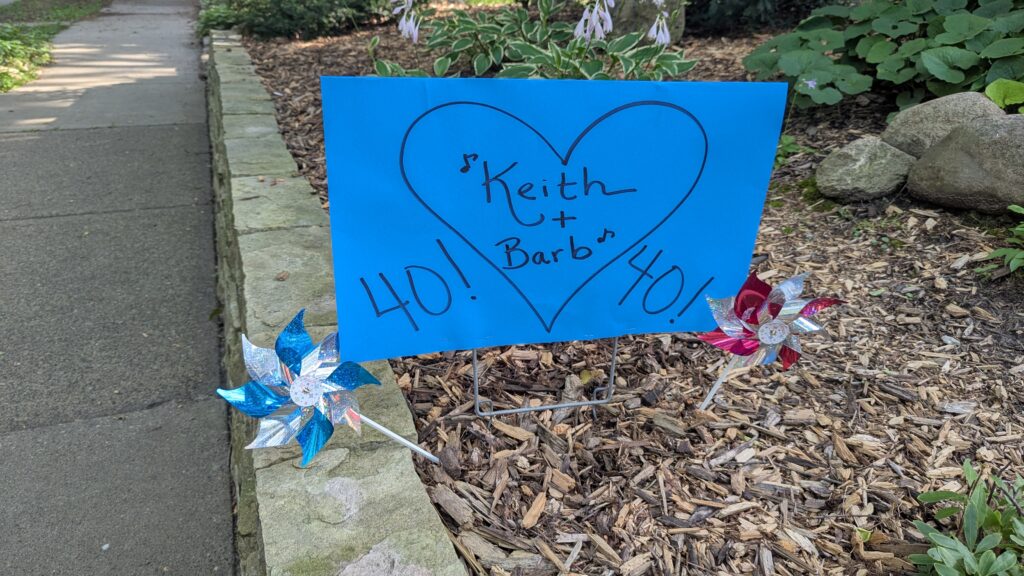 ♪ Keith
+
Barb ♪
40! 40!